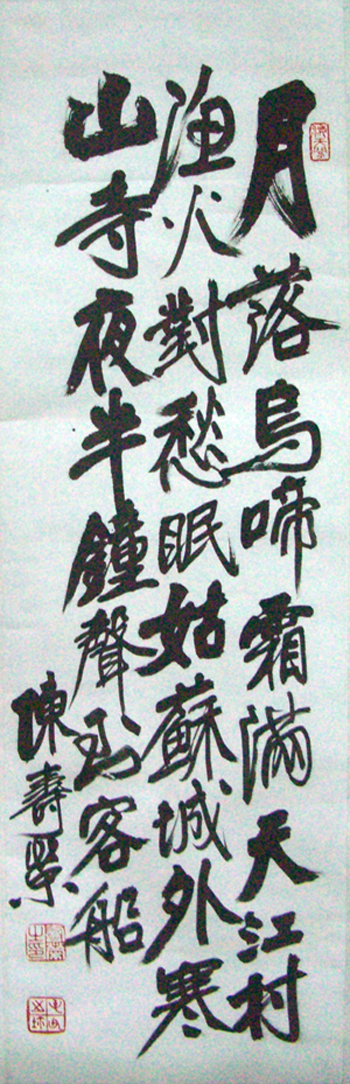 月落烏啼霜滿天江村
漁火對愁眠姑蘇城外寒
山寺夜半鐘聲到客船
陳壽榮